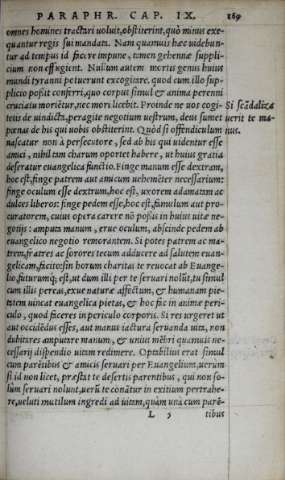 PARAPHR. CAP. IX. 169
omnes homines tractari uoluit, obstiterint, quò minus exe-
quantur regis sui mandata. Nam quamuis hæc uidebun-
tur ad tempus id facere impune, tamen gehennæ suppli-
cium non effugient. Nullum autem mortis genus huius
mundi tyranni potuerunt excogitare, quod cum illo sup-
plicio possit conferri, quo corpus simul & anima perenni
cruciatu moriētur, nec mori licebit. Proinde ne uos cogi-
tetis de uindicta, peragite negotium uestrum, deus sumet
pœnas de his qui uobis obstiterint. Quòd si offendiculum
nascatur non à persecutore, sed ab his qui uidentur esse
amici, nihil tam charum oportet habere, ut huius gratia
deseratur euangelica functio. Finge manum esse dextram,
hoc est, finge patrem aut amicum uehemēter necessarium:
finge oculum esse dextrum, hoc est, uxorem adamatam ac
dulces liberos: finge pedem esse, hoc est, famulum aut pro-
curatorem, cuius opera carere nō possis in huius uitæ ne-
gotijs: amputa manum, erue oculum, abscinde pedem ab
euangelico negotio remorantem. Si potes patrem ac ma-
trem, fratres ac sorores tecum adducere ad salutem euan-
gelicam, facito: sin horum charitas te reuocat ab Euange-
lio, futurumq; est, ut dum illi per te seruari nolūt, tu simul
cum illis pereas, exue naturæ affectum, & humanam pie-
tatem uincat euangelica pietas, & hoc fac in animæ peri-
culo, quod faceres in periculo corporis. Si res urgeret ut
aut occidēdus esses, aut manus iactura seruanda uita, non
dubitares amputare manum, & unius mēbri quamuis ne-
cessarij dispendio uitam redimere. Optabilius erat simul
cum parētibus & amicis seruari per Euangelium, uerùm
si id non licet, præstat te desertis parentibus, qui non so-
lùm seruari nolunt, uerū te conātur in exitium pertrahe-
re, ueluti mutilum ingredi ad uitam, quàm unà cum parē-
L 5 tibus
Si scādalizæ
uerit te ma-
nus.